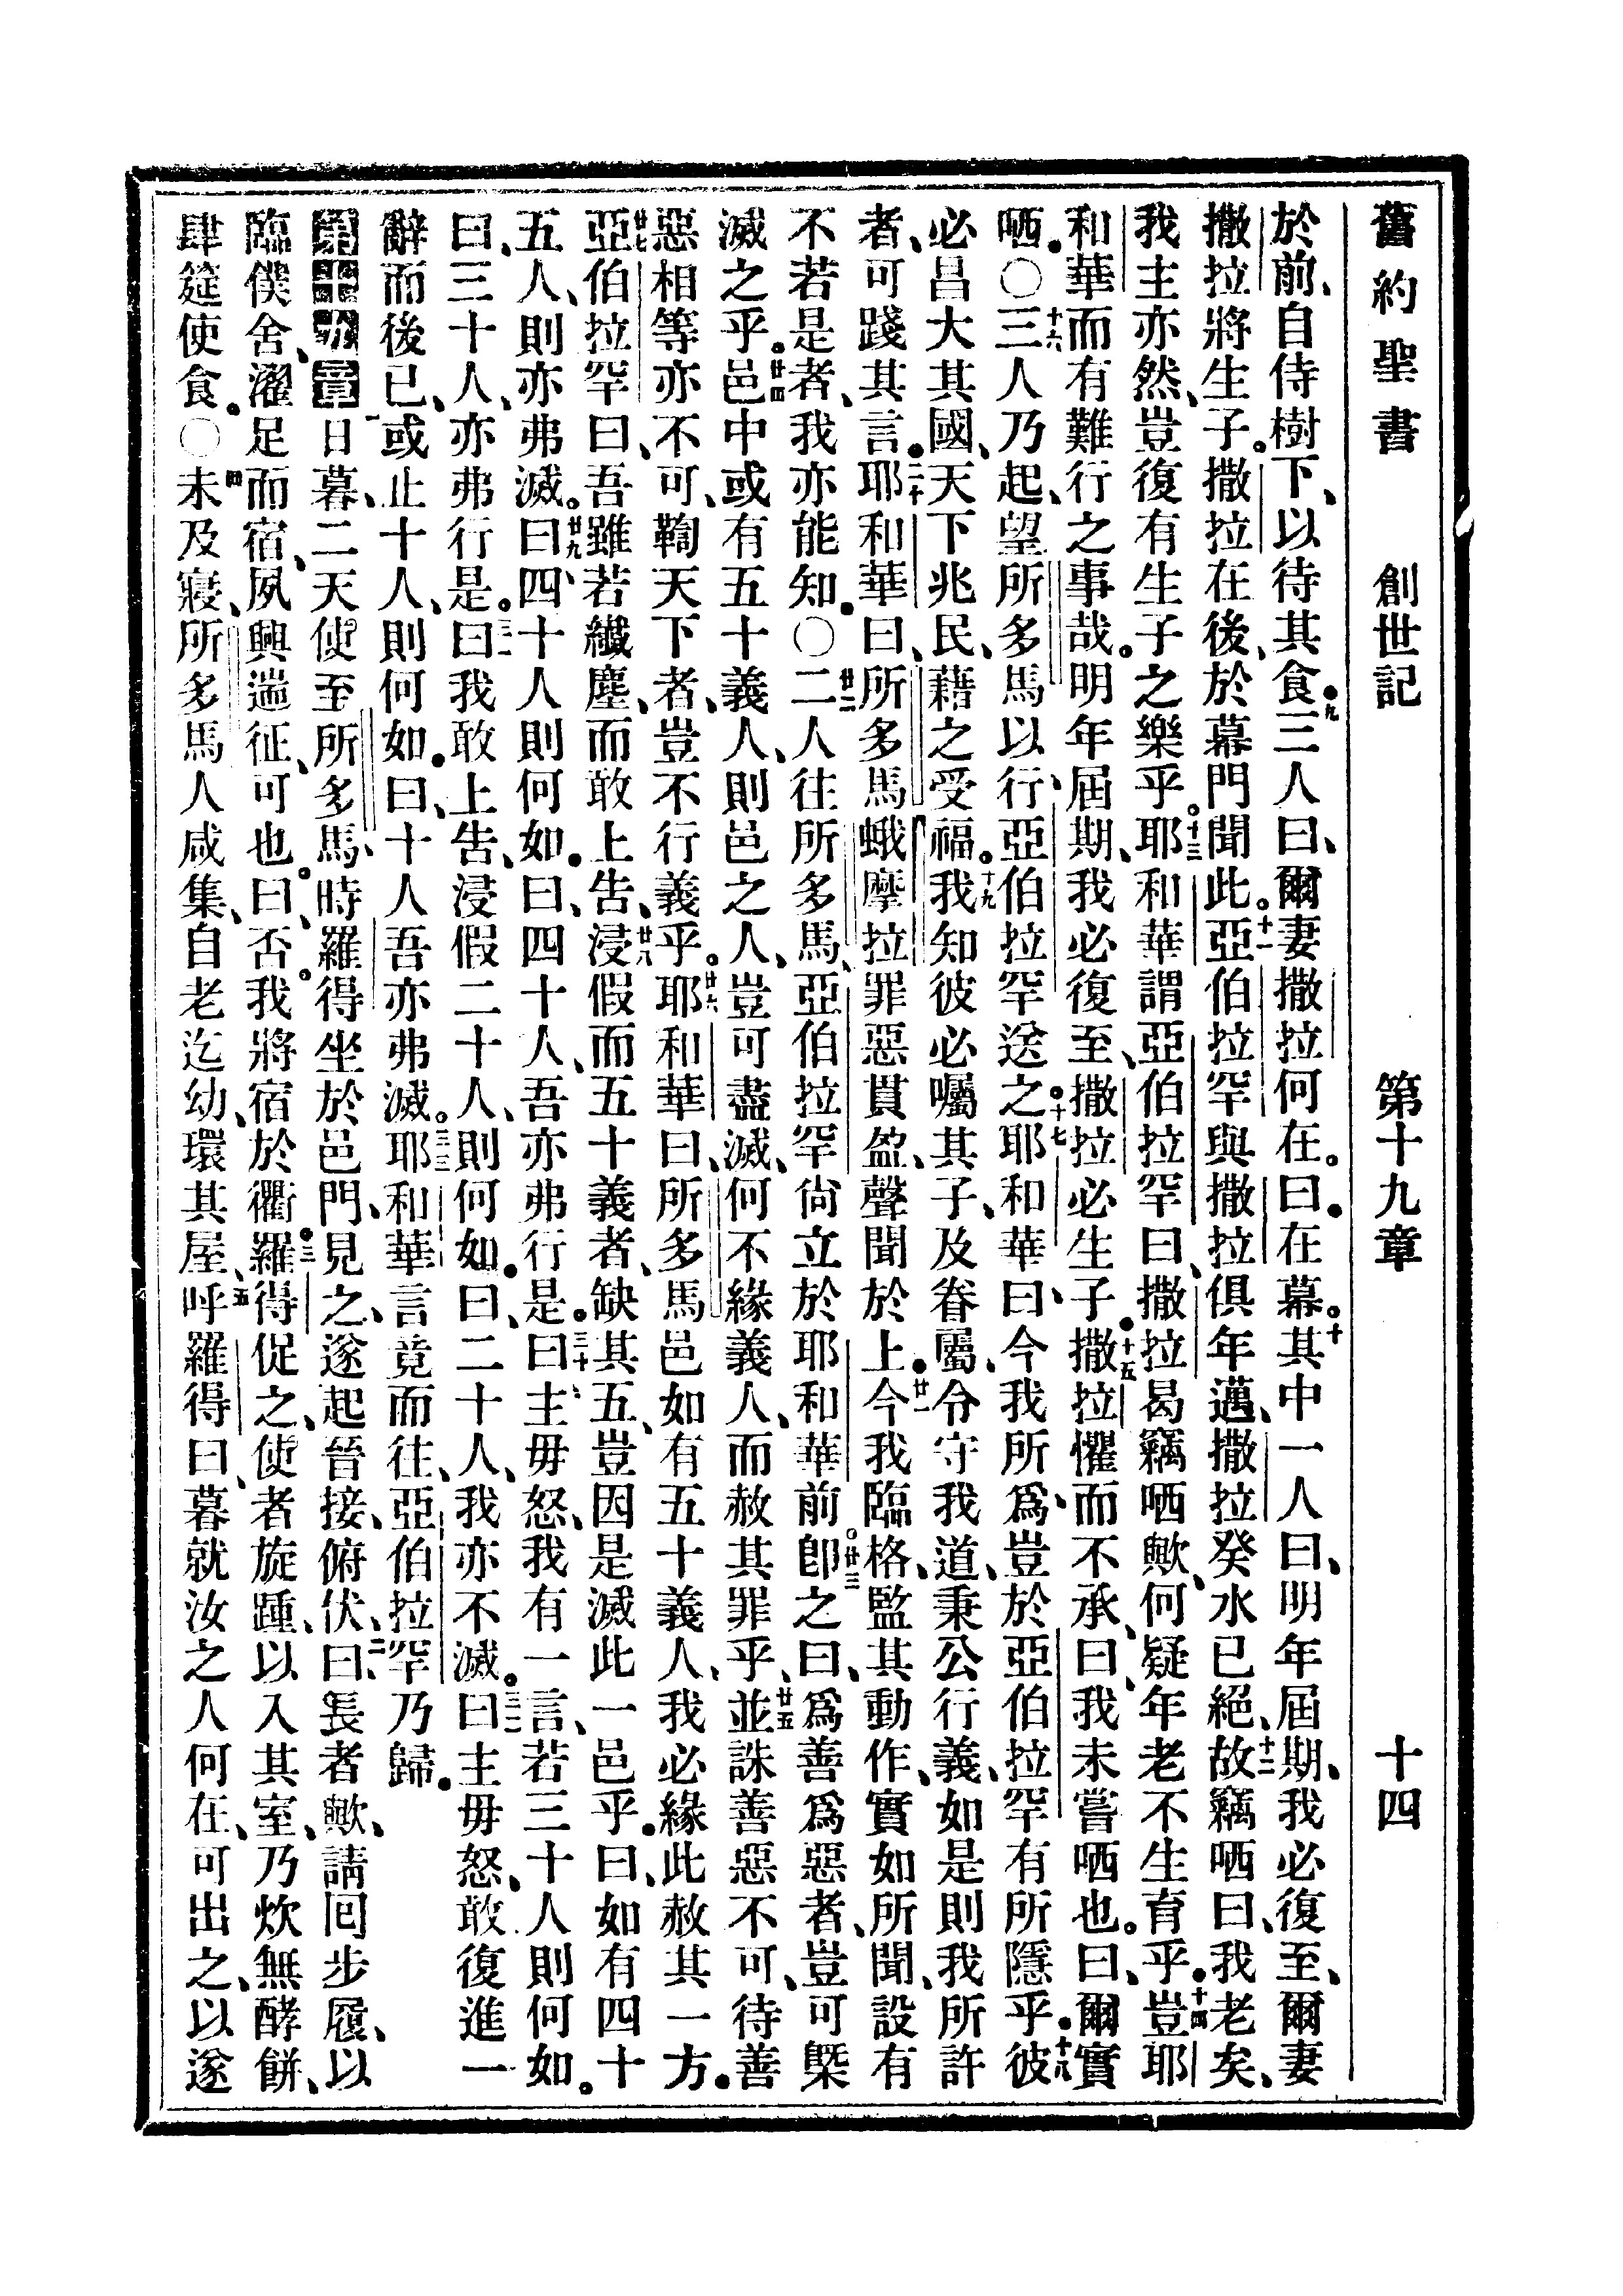 舊約聖書 創世記 第十九章 十四
於前、自侍樹下、以待其食。九三人曰、爾妻撒拉何在。曰、在幕。十其中一人曰、明年屆期、我必復至、爾妻
撒拉將生子。撒拉在後、於幕門聞此。十一亞伯拉罕與撒拉俱年邁、撒拉癸水已絕、十二故竊哂曰、我老矣、
我主亦然、豈復有生子之樂乎。十三耶和華謂亞伯拉罕曰、撒拉曷竊哂歟、何疑年老不生育乎。十四豈耶
和華而有難行之事哉。明年屆期、我必復至、撒拉必生子。十五撒拉懼而不承、曰、我未嘗哂也。曰、爾實
哂。〇十六三人乃起、望所多馬以行、亞伯拉罕送之。十七耶和華曰、今我所爲、豈於亞伯拉罕有所隱乎。十八彼
必昌大其國、天下兆民、藉之受福。十九我知彼必囑其子、及眷屬、令守我道、秉公行義、如是則我所許
者、可踐其言。二十耶和華曰、所多馬蛾摩拉罪惡貫盈、聲聞於上。廿一今我臨格、監其動作、實如所聞、設有
不若是者、我亦能知。〇廿二二人往所多馬、亞伯拉罕尙立於耶和華前。廿三卽之曰、爲善爲惡者、豈可槩
滅之乎。廿四邑中或有五十義人、則邑之人、豈可盡滅、何不緣義人、而赦其罪乎、廿五並誅善惡不可、待善
惡相等亦不可、鞫天下者、豈不行義乎。廿六耶和華曰、所多馬邑如有五十義人、我必緣此赦其一方。
廿七亞伯拉罕曰、吾雖若纖塵、而敢上告、廿八浸假而五十義者、缺其五、豈因是滅此一邑乎。曰、如有四十
五人、則亦弗滅。廿九曰、四十人則何如。曰、四十人、吾亦弗行是。三十曰、主毋怒、我有一言、若三十人則何如。
曰、三十人、亦弗行是。三一曰我敢上告、浸假二十人、則何如。曰、二十人、我亦不滅。三二曰主毋怒、敢復進一
辭而後已、或止十人、則何如。曰、十人吾亦弗滅。三三耶和華言竟而往、亞伯拉罕乃歸。
第十九章 一日暮、二天使至所多馬、時羅得坐於邑門、見之、遂起晉接、俯伏、二曰、長者歟、請回步履、以
臨僕舍、濯足而宿、夙興遄征、可也。曰、否。我將宿於衢。三羅得促之、使者旋踵、以入其室、乃炊無酵餅、
肆筵使食。〇四未及寢、所多馬人咸集、自老迄幼、環其屋、五呼羅得曰、暮就汝之人何在、可出之、以遂